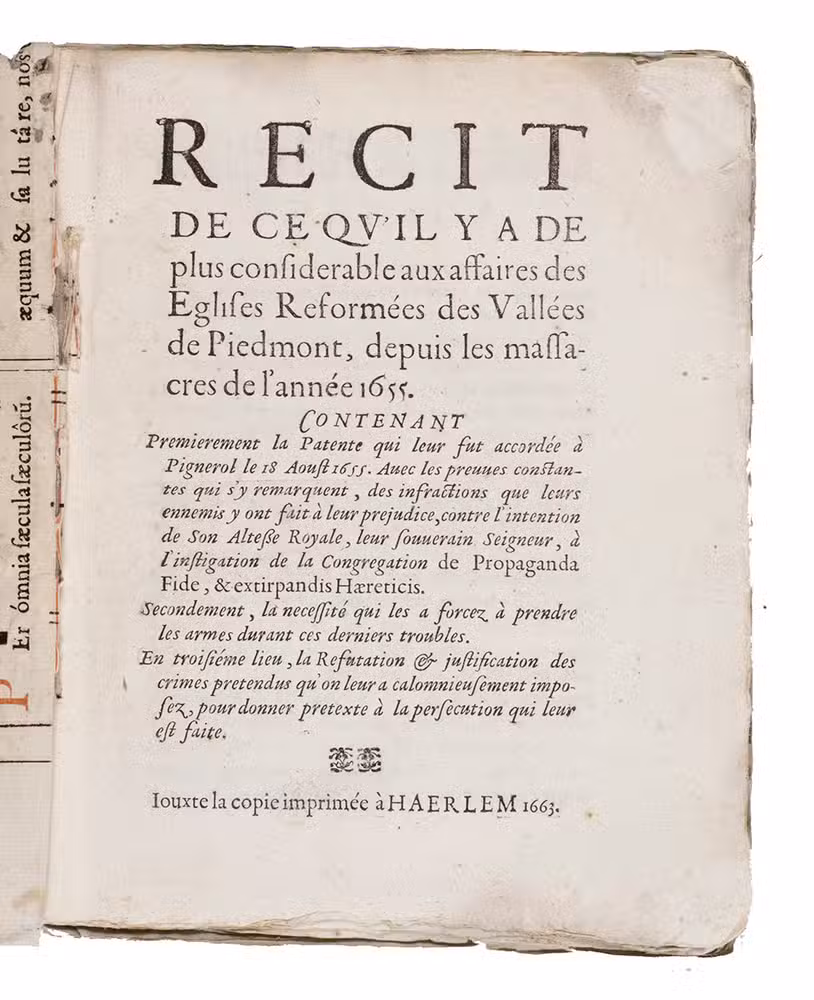 æquum & ſa lu tá re, nos
Er ómnia ſæcula ſæculôrú.
P
RECIT
DE CE QV'IL Y A DE
plus conſiderable aux affaires des
Egliſes Reformées des Vallées
de Piedmont, depuis les maſſa-
cres de l'année 1655.
CONTENANT
Premierement la Patente qui leur fut accordée à
Pignerol le 18 Aouſt 1655. Auec les preuues conſtan-
tes qui s'y remarquent, des infractions que leurs
ennemis y ont fait à leur prejudice, contre l'intention
de Son Alteſſe Royale, leur ſouuerain Seigneur, à
l'inſtigation de la Congregation de Propaganda
Fide, & extirpandis Hæreticis.
Secondement, la neceſſité qui les a forcez à prendre
les armes durant ces derniers troubles.
En troiſiéme lieu, la Refutation & juſtification des
crimes pretendus qu'on leur a calomnieuſement impo-
ſez, pour donner pretexte à la perſecution qui leur
eſt faite.
Iouxte la copie imprimée à HAERLEM 1663.